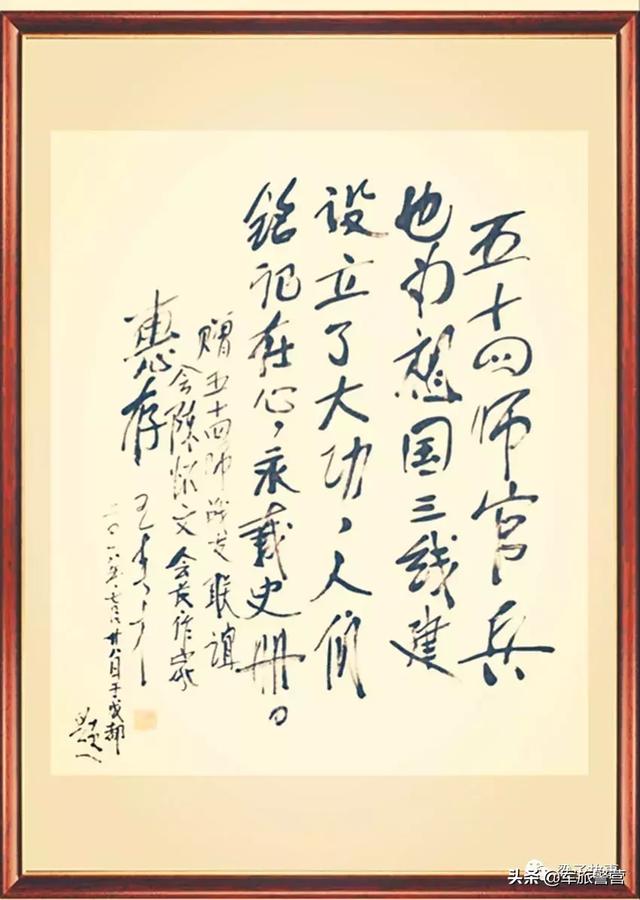 五十四师官兵
也为祖国三线建
设立了大功，人们
铭记在心，永载史册。
赠五十四师战友联谊
会陈怀文会长作家
惠存
二〇一六年七月廿八日于成都
头条@军旅警营